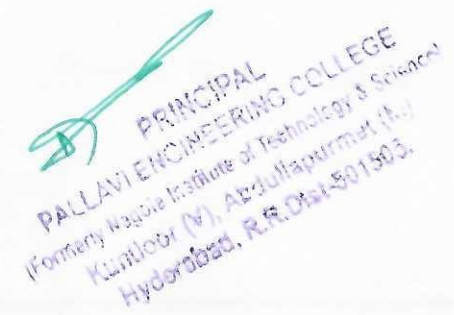 PRINCIPAL
PALLAVI ENGINEERING COLLEGE
(Formerly Nagole Institute of Technology & Science)
Kuntloor (V), Abdullapurmet (M),
Hyderabad, R.R.Dist-501505.